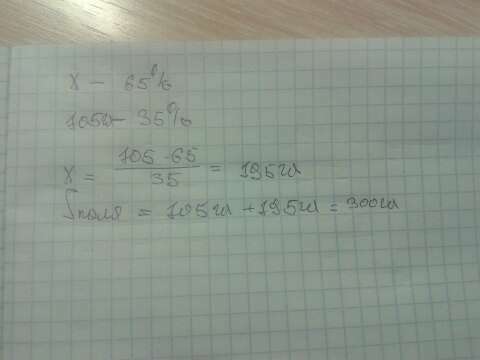 x – 65%
105га – 35%
x = 105 · 65 / 35 = 195га
Sполя = 105га + 195га = 300га